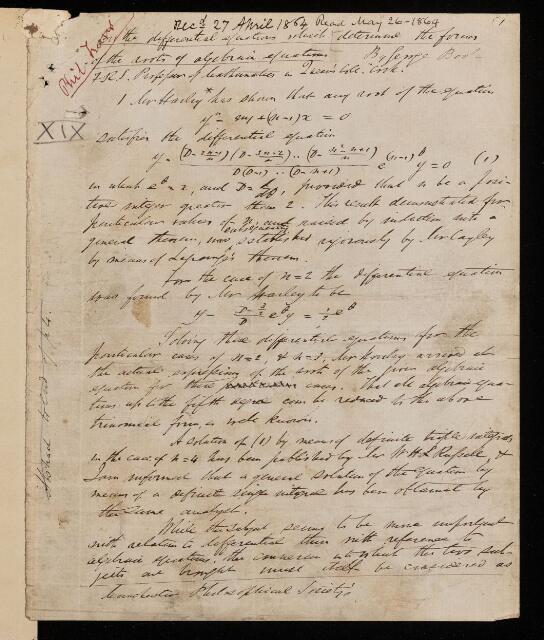 Recd 27 April 1864 Read May 26-1864
Phil. Trans.
XIX
On the differential equations which determine the forms
of the roots of algebraic equations By George Boole
F.R.S. Professor of Mathematics in Queen's Coll. Cork.
1 Mr Harley* has shown that any root of the equation
yⁿ - ny + (n-1)x = 0
satisfies the differential equation
y - \frac{(D - \frac{2n-1}{n})(D - \frac{3n-2}{n}) .. (D - \frac{n²-n+1}{n})}{D(D-1) .. (D-n+1)} e^{(n-1)θ} y = 0 (1)
in which e^θ = x, and D = \frac{d}{dθ}, provided that n be a posi-
tive integer greater than 2. This result demonstrated for
particular values of n, and raised by induction into a
general theorem, was subsequently established rigorously by Mr Cayley
by means of Lagrange's theorem.
For the case of n=2 the differential equation
was found by Mr Harley to be
y - \frac{D - \frac{3}{2}}{D} e^θ y = \frac{1}{2} e^θ
Solving these differential equations for the
particular cases of n=2, & n=3, Mr Harley arrived at
the actual expression of the roots of the given algebraic
equation for these cases. That all algebraic equa-
tions up to the fifth degree can be reduced to the above
trinomial form, is well known.
A solution of (1) by means of definite triple integrals
in the case of n=4 has been published by Mr W. H. L. Russell, &
I am informed that a general solution of the equation by
means of a definite single integral has been obtained by
the same analyst.
While the subject seems to be more important
with relation to differential than with reference to
algebraic equations, the connexion into which the two sub-
jects are brought must itself be considered as
Manchester Philosophical Society's